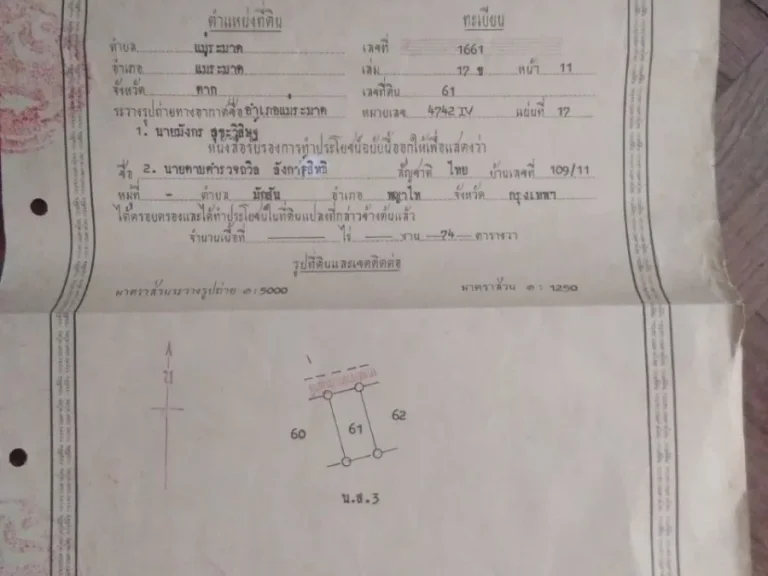 ตำแหน่งที่ดิน ทะเบียน
ตำบล แม่ระมาด เลขที่ 1661
อำเภอ แม่ระมาด เล่ม 17 ข หน้า 11
จังหวัด ตาก เลขที่ดิน 61
ระวางรูปถ่ายทางอากาศชื่อ อำเภอแม่ระมาด หมายเลข 4742 IV แผ่นที่ 17
1. นายมังกร สุขะวิสิษฐ์
หนังสือรับรองการทำประโยชน์ฉบับนี้ออกให้เพื่อแสดงว่า
ชื่อ 2. นายดาบตำรวจถวิล สัญชาติ ไทย บ้านเลขที่ 109/11
หมู่ที่ - ตำบล มักสัน อำเภอ พญาไท จังหวัด กรุงเทพฯ
ได้ครอบครองและได้ทำประโยชน์ในที่ดินแปลงที่กล่าวข้างต้นแล้ว
จำนวนเนื้อที่ ไร่ งาน 74 ตารางวา
รูปที่ดินและเขตติดต่อ
มาตราส่วนระวางรูปถ่าย ๑:5000 มาตราส่วน ๑: 1250
น
60 61 62
น.ส.3